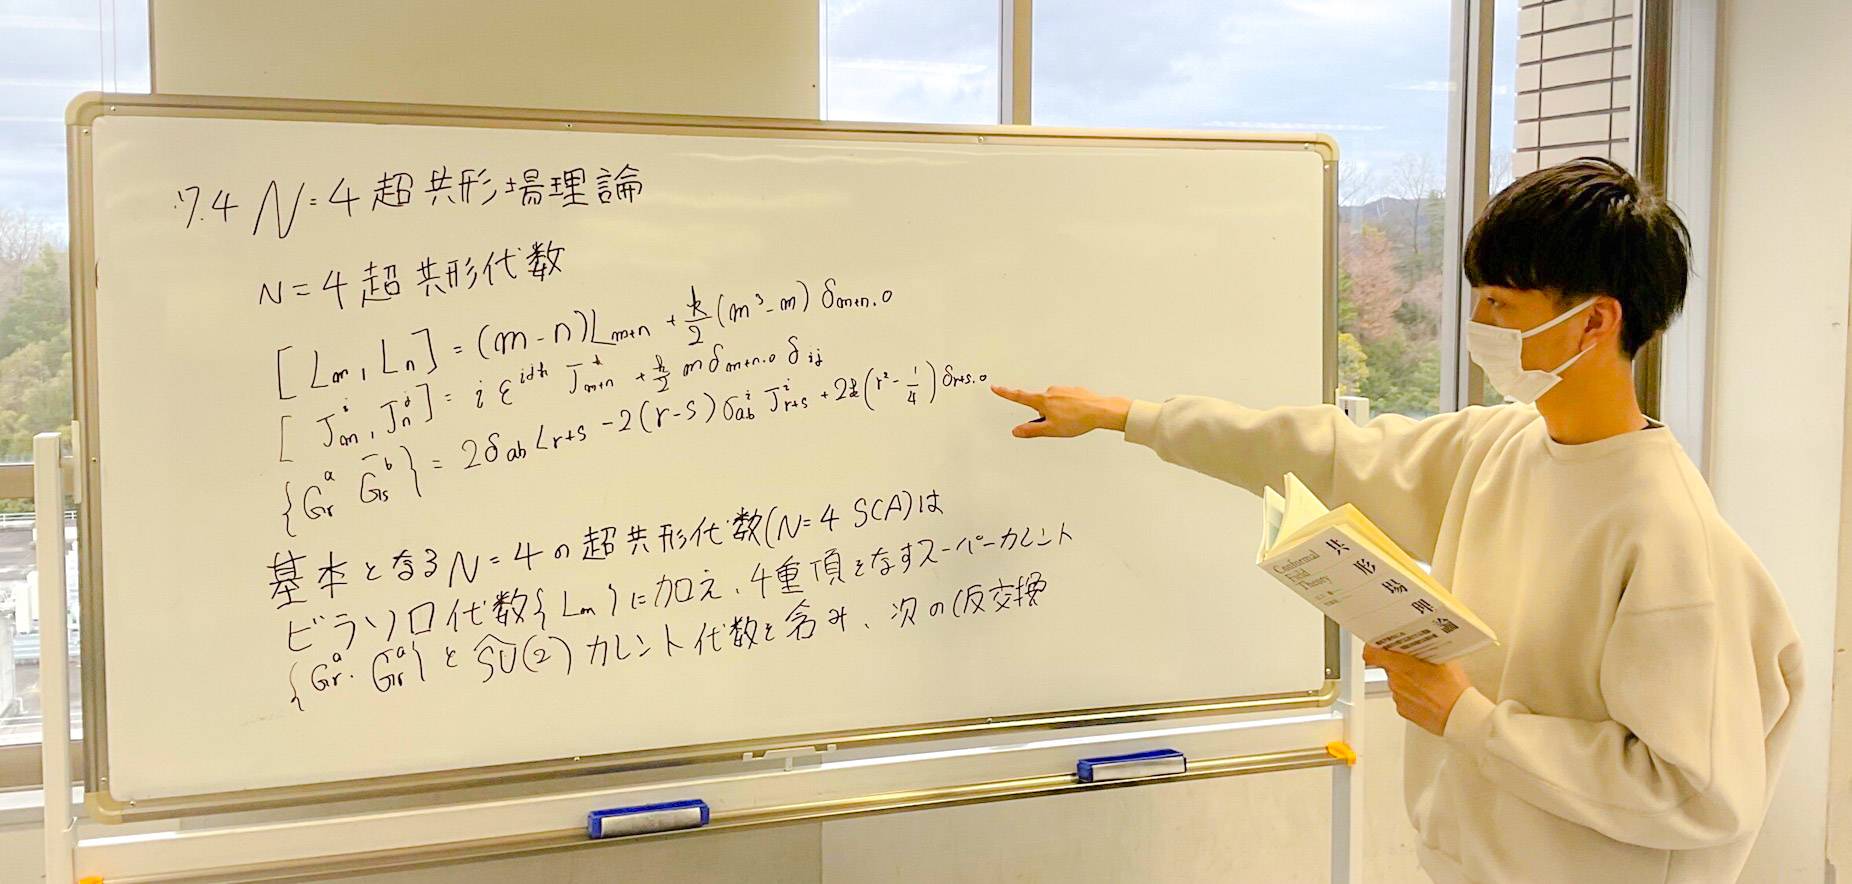 7.4 N=4 超共形場理論
N=4 超共形代数
[Lm, Ln] = (m-n)Lm+n + k/2 (m³-m) δm+n.0
[J^i_m, J^j_n] = i ε^ijk J^k_m+n + k/2 m δm+n.0 δij
{G^a_r Ḡ^b_s} = 2δab Lr+s - 2(r-s) σ^i_ab J^i_r+s + 2k(r²-1/4) δr+s.0
基本となるN=4の超共形代数(N=4 SCA)は
ビラソロ代数{Lm}に加え、4重項をなすスーパーカレント
{G^a_r. Ḡ^a_r}とSU(2)カレント代数を含み、次の(反交換
Conformal
Field
Theory
共形場理論